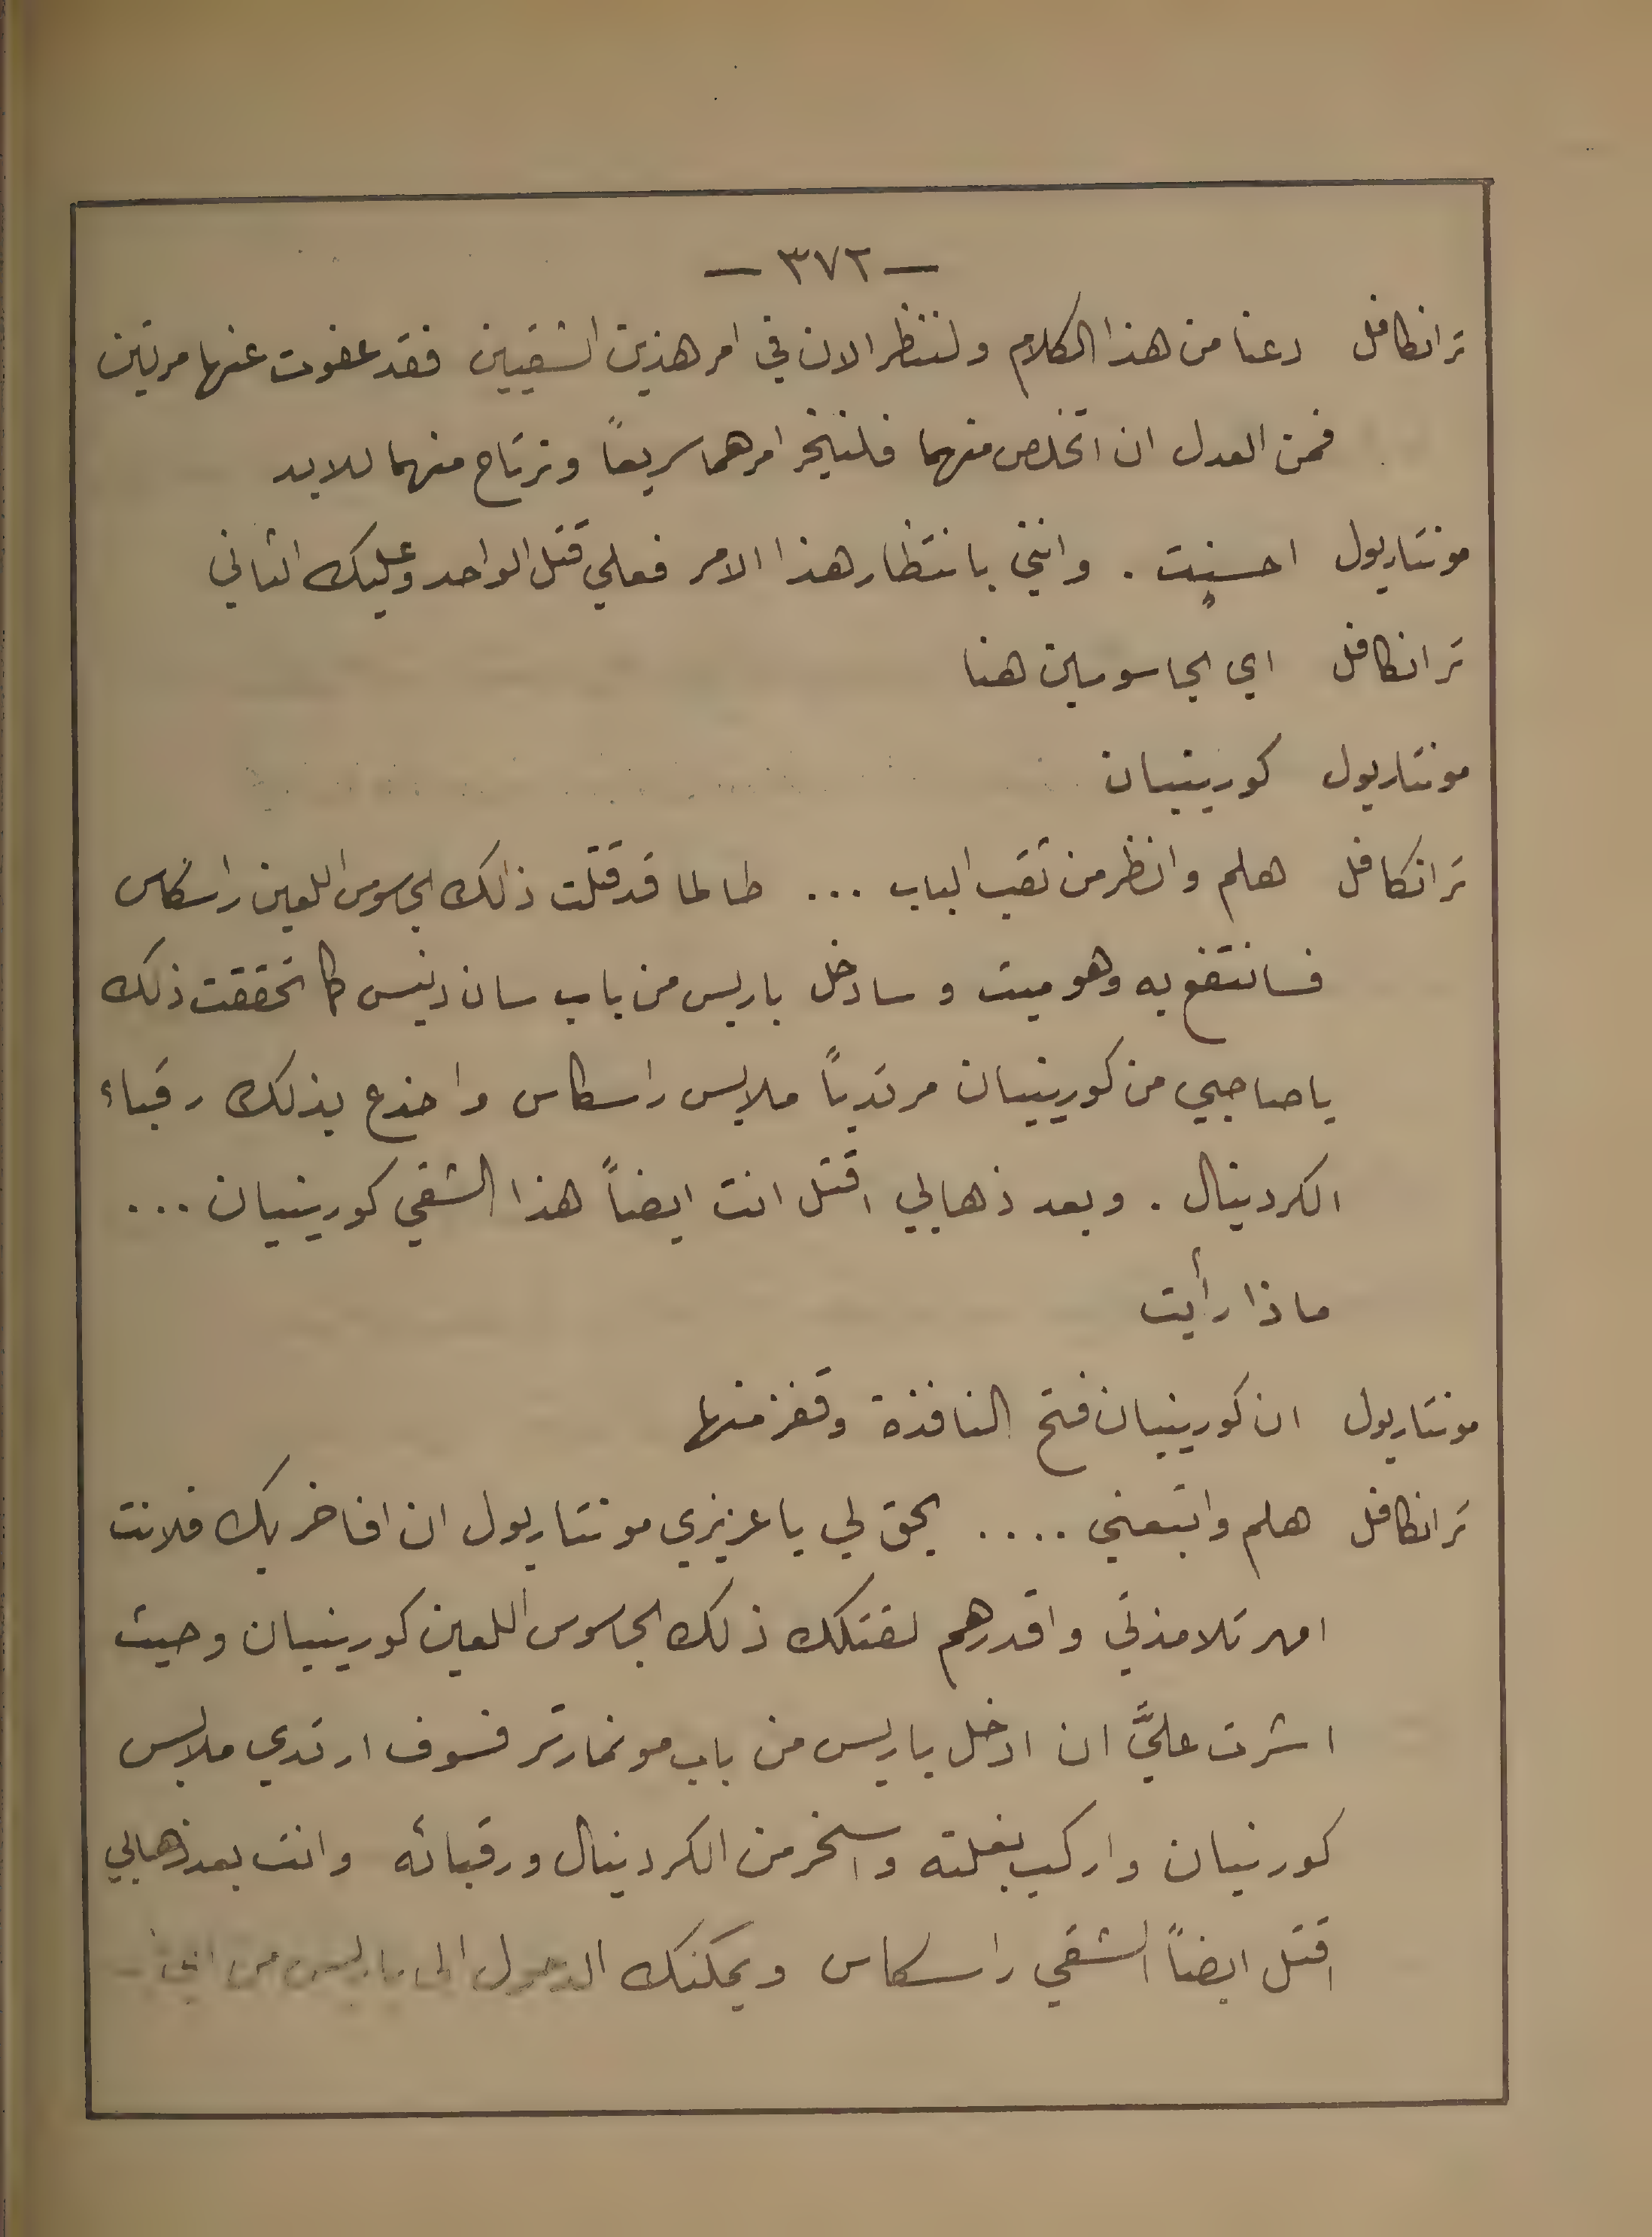 — ٣٧٢ —
ترانكافل دعنا من هذا الكلام ولننظر الان في امر هذين الشقيين فقد عفوت عنهما مرتين
فمن العدل ان اتخلص منهما فلنينجز امرهما سريعاً ونرتاح منهما للابد
مونتاريول احسنت . وانني بانتظار هذا الامر فعلي قتل الواحد وعليك الثاني
ترانكافل اي الجاسوسين هنا
مونتاريول كورينيان
ترانكافل هلم وانظر من ثقب الباب ... طالما قد قتلت ذالك الجاسوس اللعين راسكاس
فسانتفع به وهو ميت وسادخل باريس من باب سان دنيس كما تحققت ذلك
يا صاحبي من كورينيان مرتدياً ملابس راسكاس واخدع بذلك رقباء
الكردينال . وبعد ذهابي اقتل انت ايضاً هذا الشقي كورينيان ...
ماذا رأيت
مونتاريول ان كورينيان فتح النافذة وقفز منها
ترانكافل هلم واتبعني .... يحق لي يا عزيزي مونتاريول ان افاخر بك فلانت
امهر تلامذتي واقدرهم لقتلك ذلك الجاسوس اللعين كورينيان وحيث
اشرت عليَّ ان ادخل باريس من باب مونمارتر فسوف ارتدي ملابس
كورنيان واركب بغلته واسخر من الكردينال ورقبائه وانت بعد ذهابي
اقتل ايضاً الشقي راسكاس ويمكنك الدخول الى باريس من